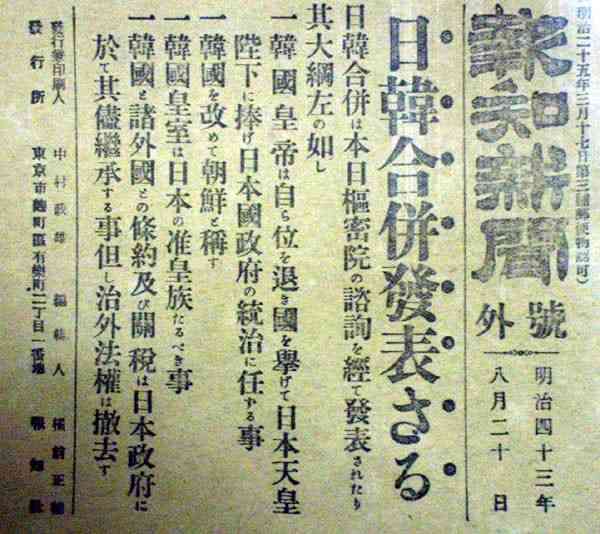 明治二十五年三月十七日第三種郵便物認可)
報知新聞
號外
明治四十三年
八月二十日
日韓合併發表さる
日韓合併は本日樞密院の諮詢を經て發表されたり
其大綱左の如し
一韓國皇帝は自ら位を退き國を擧げて日本天皇
陛下に捧げ日本國政府の統治に任ずる事
一韓國を改めて朝鮮と稱す
一韓國皇室は日本の准皇族たるべき事
一韓國と諸外國との條約及び關税は日本政府に
於て其儘繼承する事但し治外法權は撤去す
發行兼印刷人 中村政雄 編輯人
發行所 東京市麴町區有樂町二丁目一番地 報知社